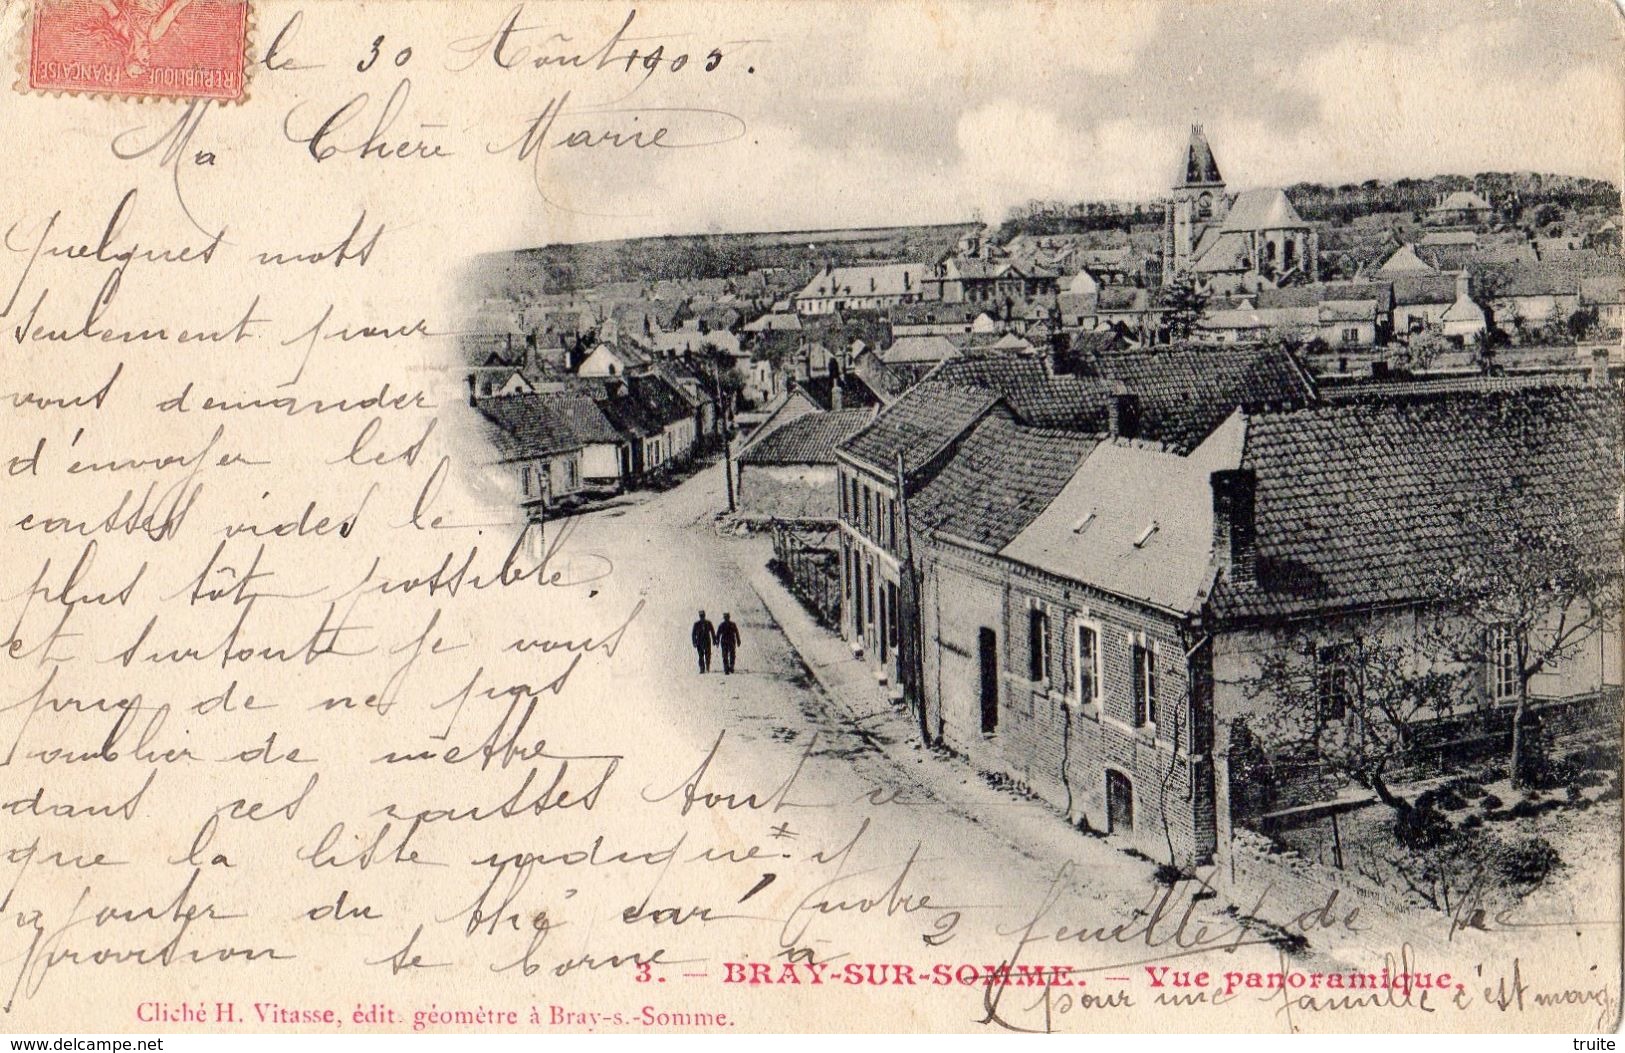 REPUBLIQUE FRANÇAISE
le 30 Août 1905.
Ma Chère Marie
Quelques mots
seulement pour
vous demander
d'envoyer les
caisses vides le
plus tôt possible.
et surtout je vous
prie de ne pas
oublier de mettre
dans ces caisses tout ce
que la liste indique. y
ajouter du thé car notre
provision se borne à 2 feuilles de thé
pour une famille c'est maig
3. — BRAY-SUR-SOMME. — Vue panoramique.
Cliché H. Vitasse, édit. géomètre à Bray-s.-Somme.
www.delcampe.net
truite